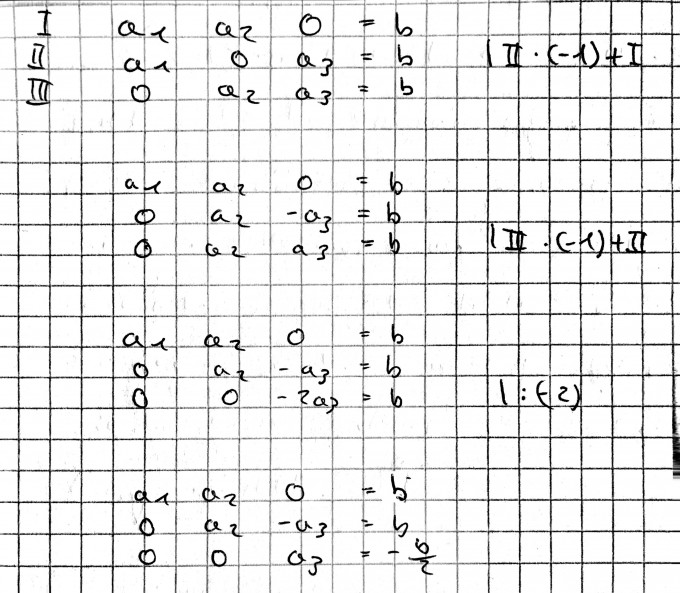 I a1 a2 0 = b
II a1 0 a3 = b | II · (-1) + I
III 0 a2 a3 = b
a1 a2 0 = b
0 a2 -a3 = b
0 a2 a3 = b | III · (-1) + II
a1 a2 0 = b
0 a2 -a3 = b
0 0 -2a3 = b | : (-2)
a1 a2 0 = b
0 a2 -a3 = b
0 0 a3 = - b/2